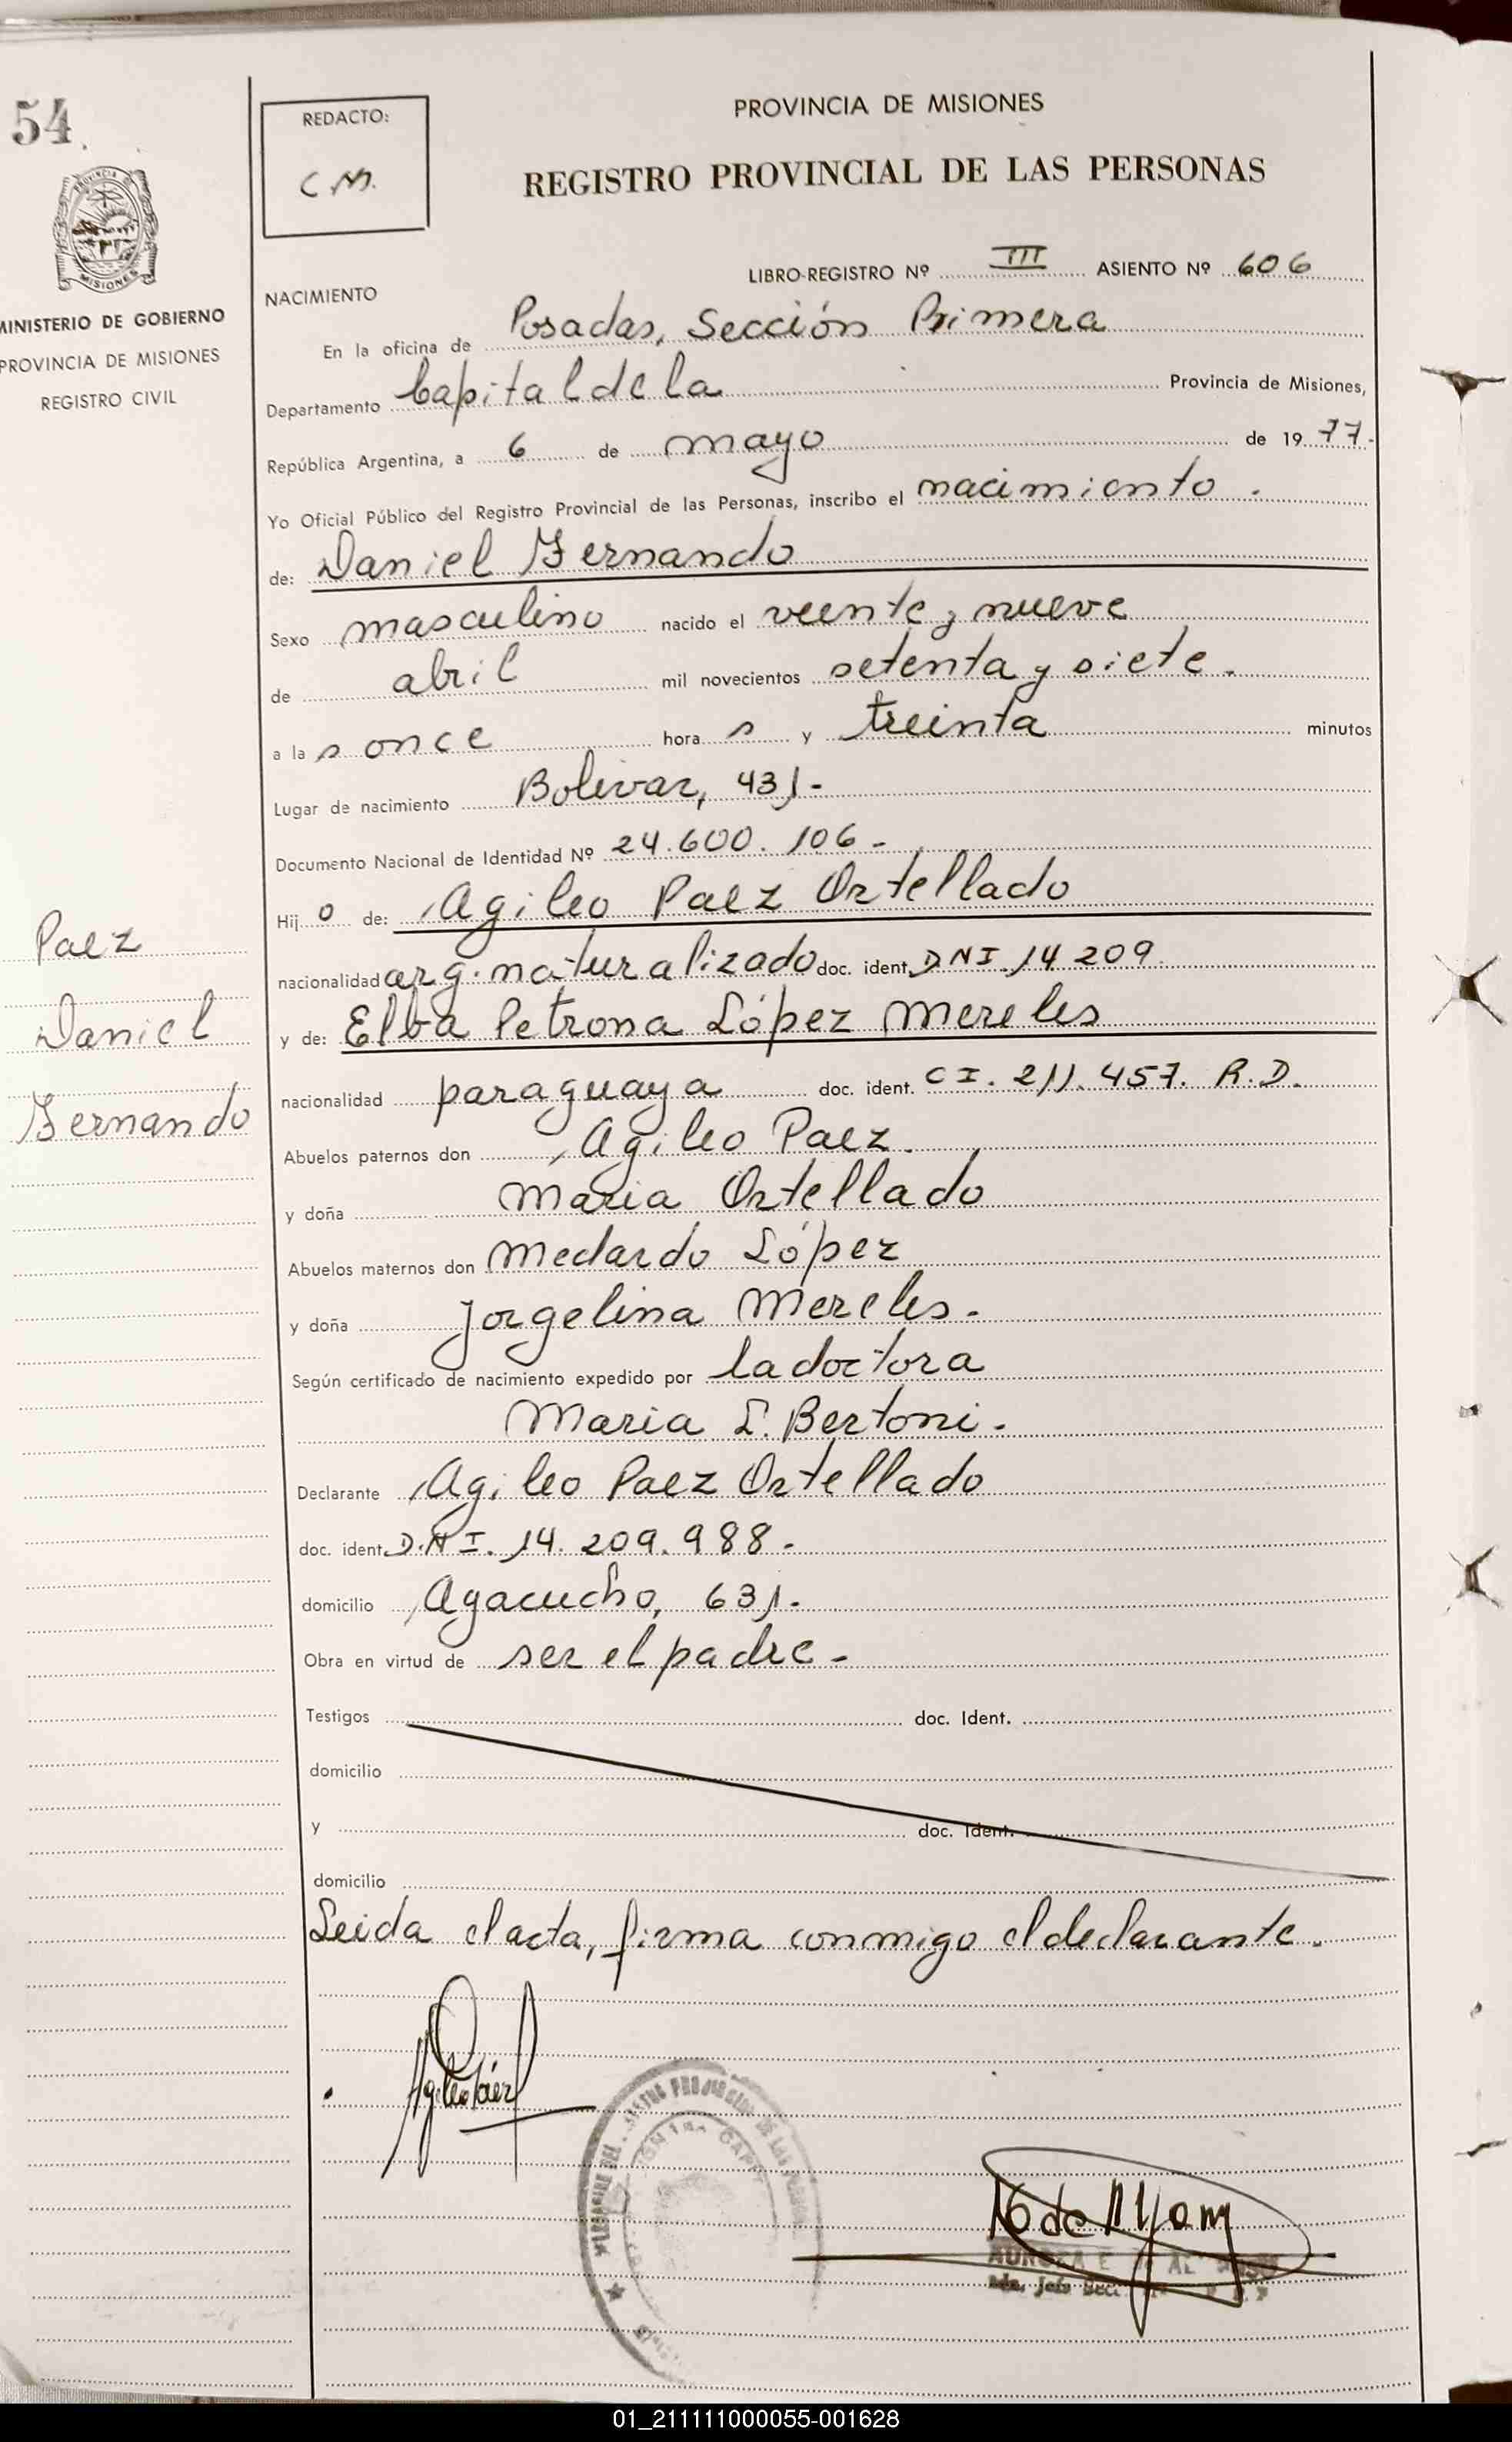 54
REDACTO:
C M.
PROVINCIA DE MISIONES
REGISTRO PROVINCIAL DE LAS PERSONAS
MISIONES
MINISTERIO DE GOBIERNO
PROVINCIA DE MISIONES
REGISTRO CIVIL
LIBRO-REGISTRO Nº III ASIENTO Nº 606
NACIMIENTO
En la oficina de Posadas, Sección Primera
Departamento Capital de la Provincia de Misiones,
República Argentina, a 6 de mayo de 1977.
Yo Oficial Público del Registro Provincial de las Personas, inscribo el nacimiento.
de: Daniel Fernando
Sexo masculino nacido el veinte y nueve
de abril mil novecientos setenta y siete.
a la s once hora s y treinta minutos
Lugar de nacimiento Bolivar, 431.-
Documento Nacional de Identidad Nº 24.600.106-
Hij o de: Agileo Paez Ortellado
nacionalidad arg. naturalizado doc. ident. DNI.14 209
y de: Elba Petrona López Mereles
nacionalidad paraguaya doc. ident. CI. 211.457. R.D.
Paez
Daniel
Fernando
Abuelos paternos don Agileo Paez.
y doña Maria Ortellado
Abuelos maternos don Medardo López
y doña Jorgelina Mereles.
Según certificado de nacimiento expedido por la doctora
Maria L. Bertoni.
Declarante Agileo Paez Ortellado
doc. ident. D.N I. 14. 209.988.
domicilio Ayacucho, 631.
Obra en virtud de ser el padre-
Testigos doc. Ident.
domicilio
y doc. Ident.
domicilio
Leida el acta, firma conmigo el declarante.
01_211111000055-001628